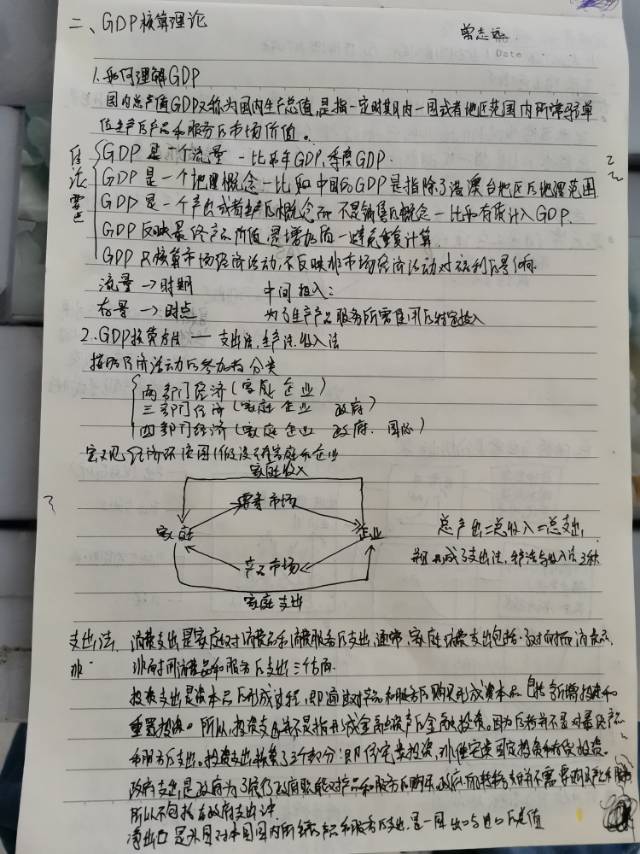 二、GDP核算理论
曾志远
Date
1.如何理解GDP
国内总产值GDP又称为国内生产总值,是指一定时期内一国或者地区范围内所有常驻单
位生产的产品和服务的市场价值。
GDP是一个流量 - 比如年GDP,季度GDP.
GDP是一个地理概念 - 比如中国的GDP是指除了港澳台地区的地理范围
GDP是一个产出或者生产的概念而不是销售的概念 - 比如存货计入GDP.
GDP反映最终产品价值,是增加值 - 避免重复计算.
GDP只核算市场经济活动,不反映非市场经济活动对福利的影响
流量→时期 中间投入:
存量→时点 为了生产产品服务所需使用的投入
2.GDP核算方法 — 支出法,生产法,收入法
按照经济活动的参加者分类
两部门经济(家庭 企业)
三部门经济(家庭 企业 政府)
四部门经济(家庭 企业 政府 国际)
宏观经济循环图(假设只有家庭和企业
家庭收入
要素市场
家庭
企业
产品市场
家庭支出
总产出=总收入=总支出,
形成了支出法,生产法与收入法3种
支出法 消费支出是家庭对消费品和消费服务的支出,通常,家庭消费支出包括:耐用消费品,
非耐用消费品和服务的支出三方面
投资支出是资本品的形成过程,即通过对产品和服务的购买形成资本品 包括新增投资和
重置投资。所以,投资支出并不是指形成金融资产的金融投资。因为后者并不是对最终产品
和服务的支出。投资支出 三个部分:即住宅类投资,非住宅类固定投资和存货投资。
政府支出,是政府为了履行政府职能对产品和服务的购买,政府的转移支付并不需要
所以不包括在政府支出中.
净出口 是外国对本国国内所生产产品和服务的支出,是一国出口与进口的差值